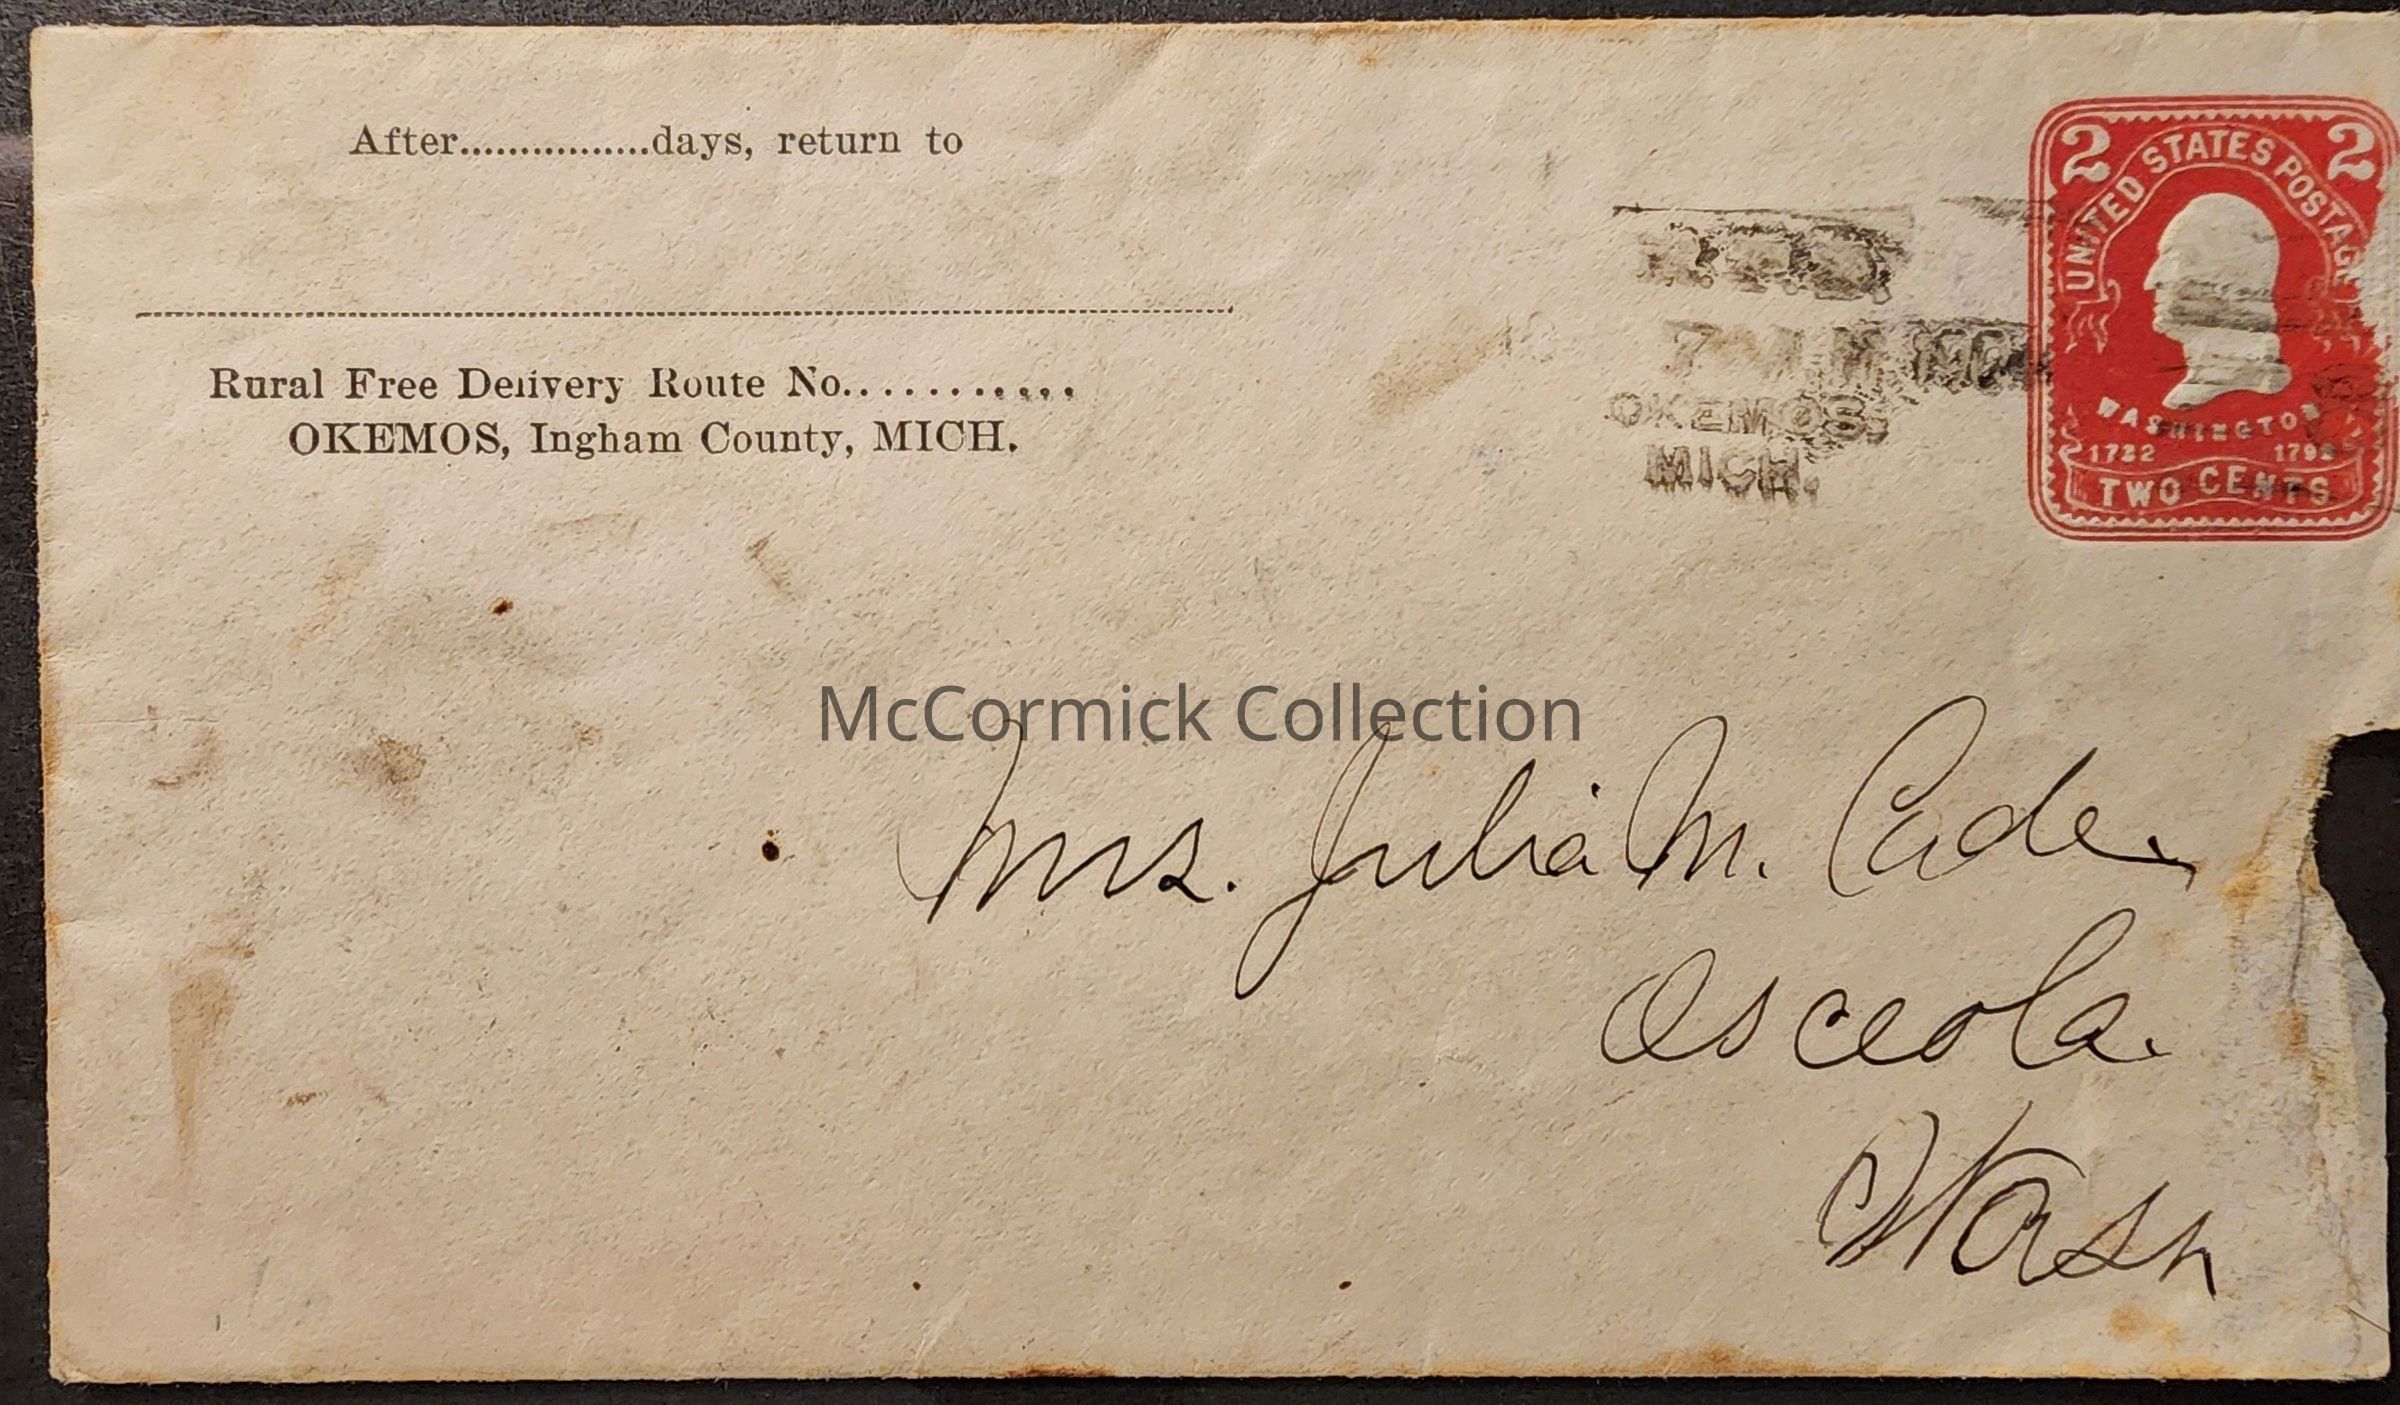 After................days, return to
Rural Free Delivery Route No...........
OKEMOS, Ingham County, MICH.
2 2
UNITED STATES POSTAGE
WASHINGTON
1732 1799
TWO CENTS
R.F.D.
OKEMOS,
MICH.
McCormick Collection
Mrs. Julia M. Cade.
Osceola.
Wash